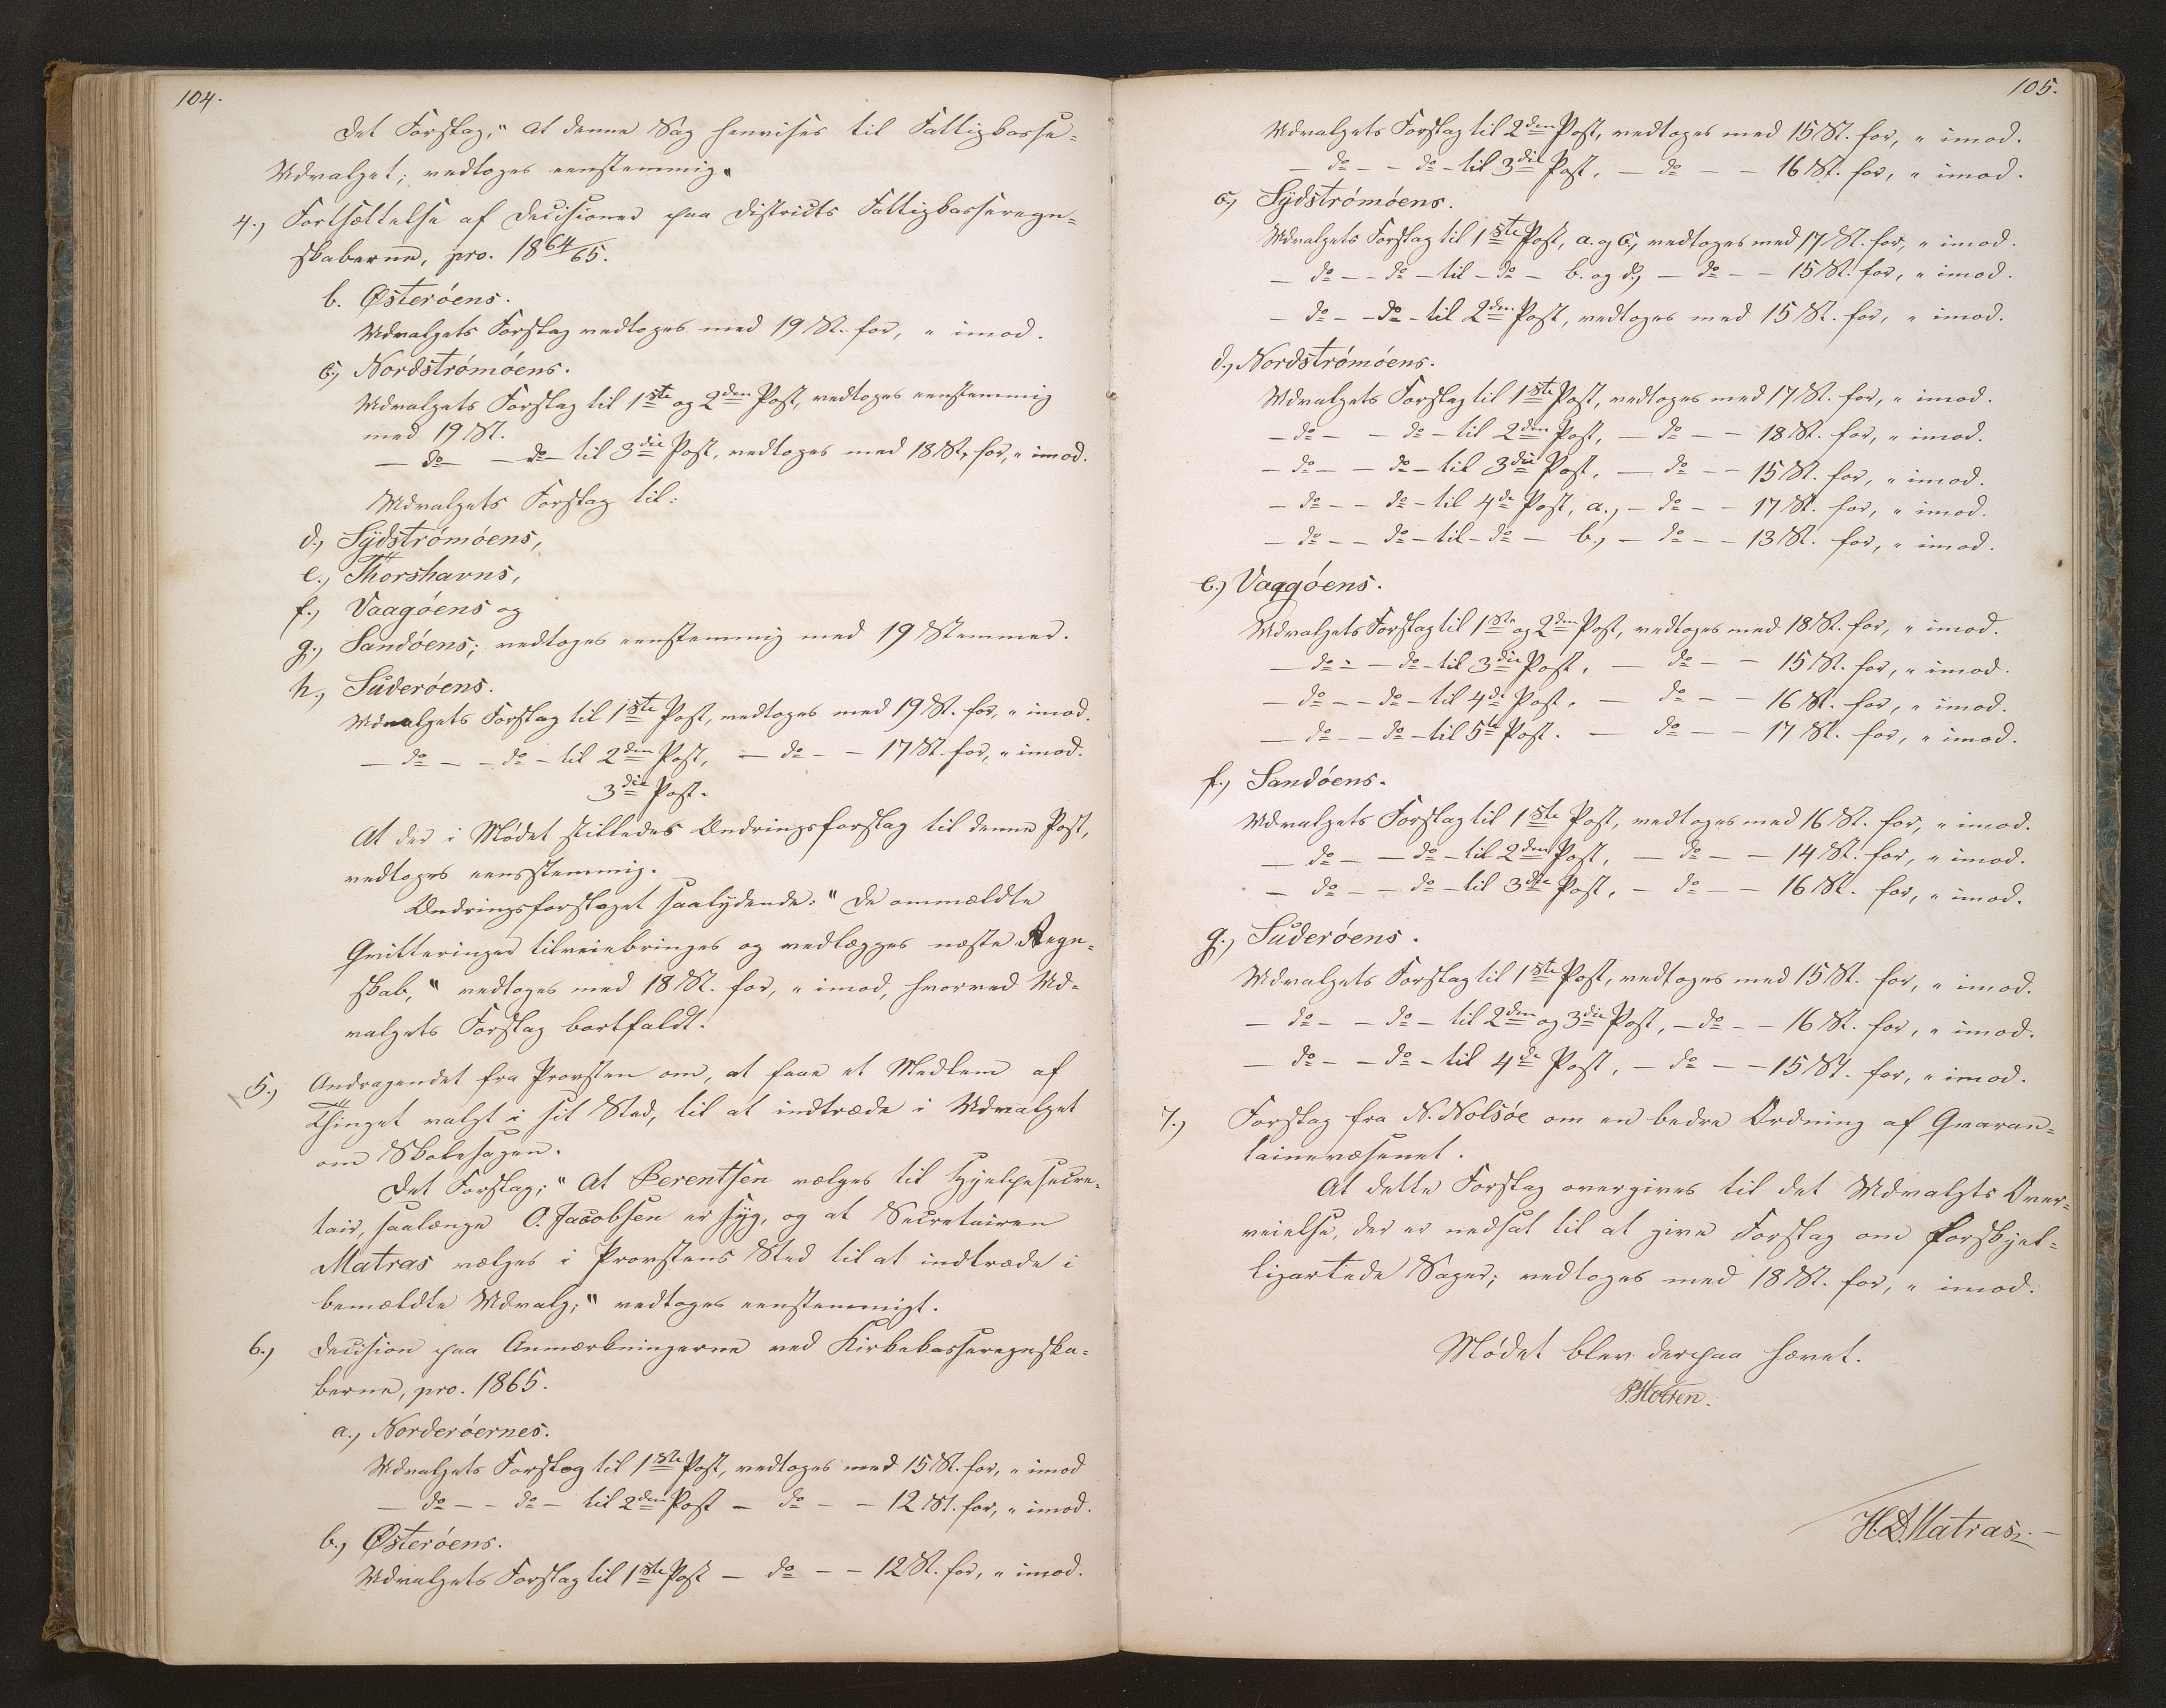 104.
Det Forslag, "at denne Sag henvises til Fattigkasse-
Udvalget; vedtoges eenstemmig.
4.) Fortsættelse af Decisioner paa Districts Fattigkasseregn=
skaberne, pro. 1864/65.
b. Østerøens.
Udvalgets Forslag vedtoges med 19 St. for, " imod.
c.) Nordstrømøens.
Udvalgets Forslag til 1ste og 2den Post, vedtoges eenstemmig
med 19 St.
— do — — do — til 3die Post, vedtoges med 18 St. for, " imod.
Udvalgets Forslag til:
d.) Sydstrømøens,
e.) Thorshavns,
f.) Vaagøens og
g.) Sandøens; vedtoges eenstemmig med 19 Stemmer.
h.) Suderøens.
Udvalgets Forslag til 1ste Post, vedtoges med 19 St. for, " imod.
— do — — do — til 2den Post, — do — — 17 St. for, " imod.
3die Post.
At der i Mødet stilledes Ændringsforslag til denne Post,
vedtoges eensstemmig.
Ændringsforslaget saalydende: "De ommeldte
Qvitteringer tilveiebringes og vedlægges næste Regn=
skab," vedtoges med 18 St. for, " imod, hvorved Ud=
valgets Forslag bortfaldt.
5.) Andragendet fra Provsten om, at faae et Medlem af
Thinget valgt i sit Sted, til at indtræde i Udvalget
om Skolesagen.
Det Forslag; "At Berentsen vælges til Hjelpesecre=
tair, saalænge O. Jacobsen er syg, og at Secretairen
Matras vælges i Provstens Sted til at indtræde i
bemældte Udvalg;" vedtoges eenstemmigt.
6.) Decision paa Anmærkningerne ved Kirkekasseregnska=
berne, pro. 1865.
a.) Norderøernes.
Udvalgets Forslag til 1ste Post, vedtoges med 15 St. for, " imod
— do — — do — til 2den Post — do — — 12 St. for, " imod.
b.) Østerøens.
Udvalgets Forslag til 1ste Post — do — — 12 St. for, " imod.
105.
Udvalgets Forslag til 2den Post, vedtoges med 15 St. for, " imod.
— do — — do — til 3die Post, — do — — 16 St. for, " imod.
c.) Sydstrømøens.
Udvalgets Forslag til 1ste Post, a. og c., vedtoges med 17 St. for, " imod.
— do — — do — til — do — b. og d.) — do — — 15 St. for, " imod.
— do — — do — til 2den Post, vedtoges med 15 St. for, " imod.
d.) Nordstrømøens.
Udvalgets Forslag til 1ste Post, vedtoges med 17 St. for, " imod.
— do — — do — til 2den Post, — do — — 18 St. for, " imod.
— do — — do — til 3die Post, — do — — 15 St. for, " imod.
— do — — do — til 4de Post, a., — do — — 17 St. for, " imod.
— do — — do — til — do — b., — do — — 13 St. for, " imod.
e.) Vaagøens.
Udvalgets Forslag til 1ste og 2den Post, vedtoges med 18 St. for, " imod.
— do — — do — til 3die Post, — do — — 15 St. for, " imod.
— do — — do — til 4de Post, — do — — 16 St. for, " imod.
— do — — do — til 5te Post. — do — — 17 St. for, " imod.
f.) Sandøens.
Udvalgets Forslag til 1ste Post, vedtoges med 16 St. for, " imod.
— do — — do — til 2den Post, — do — — 14 St. for, " imod.
— do — — do — til 3die Post, — do — — 16 St. for, " imod.
g.) Suderøens.
Udvalgets Forslag til 1ste Post, vedtoges med 15 St. for, " imod.
— do — — do — til 2den og 3die Post, — do — — 16 St. for, " imod.
— do — — do — til 4de Post, — do — — 15 St. for, " imod.
7.) Forslag fra N. Nolsøe om en bedre Ordning af Qvaran=
tainevæsenet.
At dette Forslag overgives til det Udvalgts Over=
veielse, der er nedsat til at give Forslag om forskjel=
ligartede Sager; vedtoges med 18 St. for, " imod.
Mødet blev derpaa hævet.
H. D. Matras